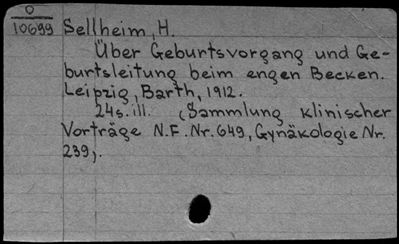 O
10699 Sellheim, H.
Über Geburtsvorgang und Ge-
burtsleitung beim engen Becken.
Leipzig, Barth, 1912.
24s. ill. (Sammlung klinischer
Vorträge N.F. Nr. 649, Gynäkologie Nr.
239).